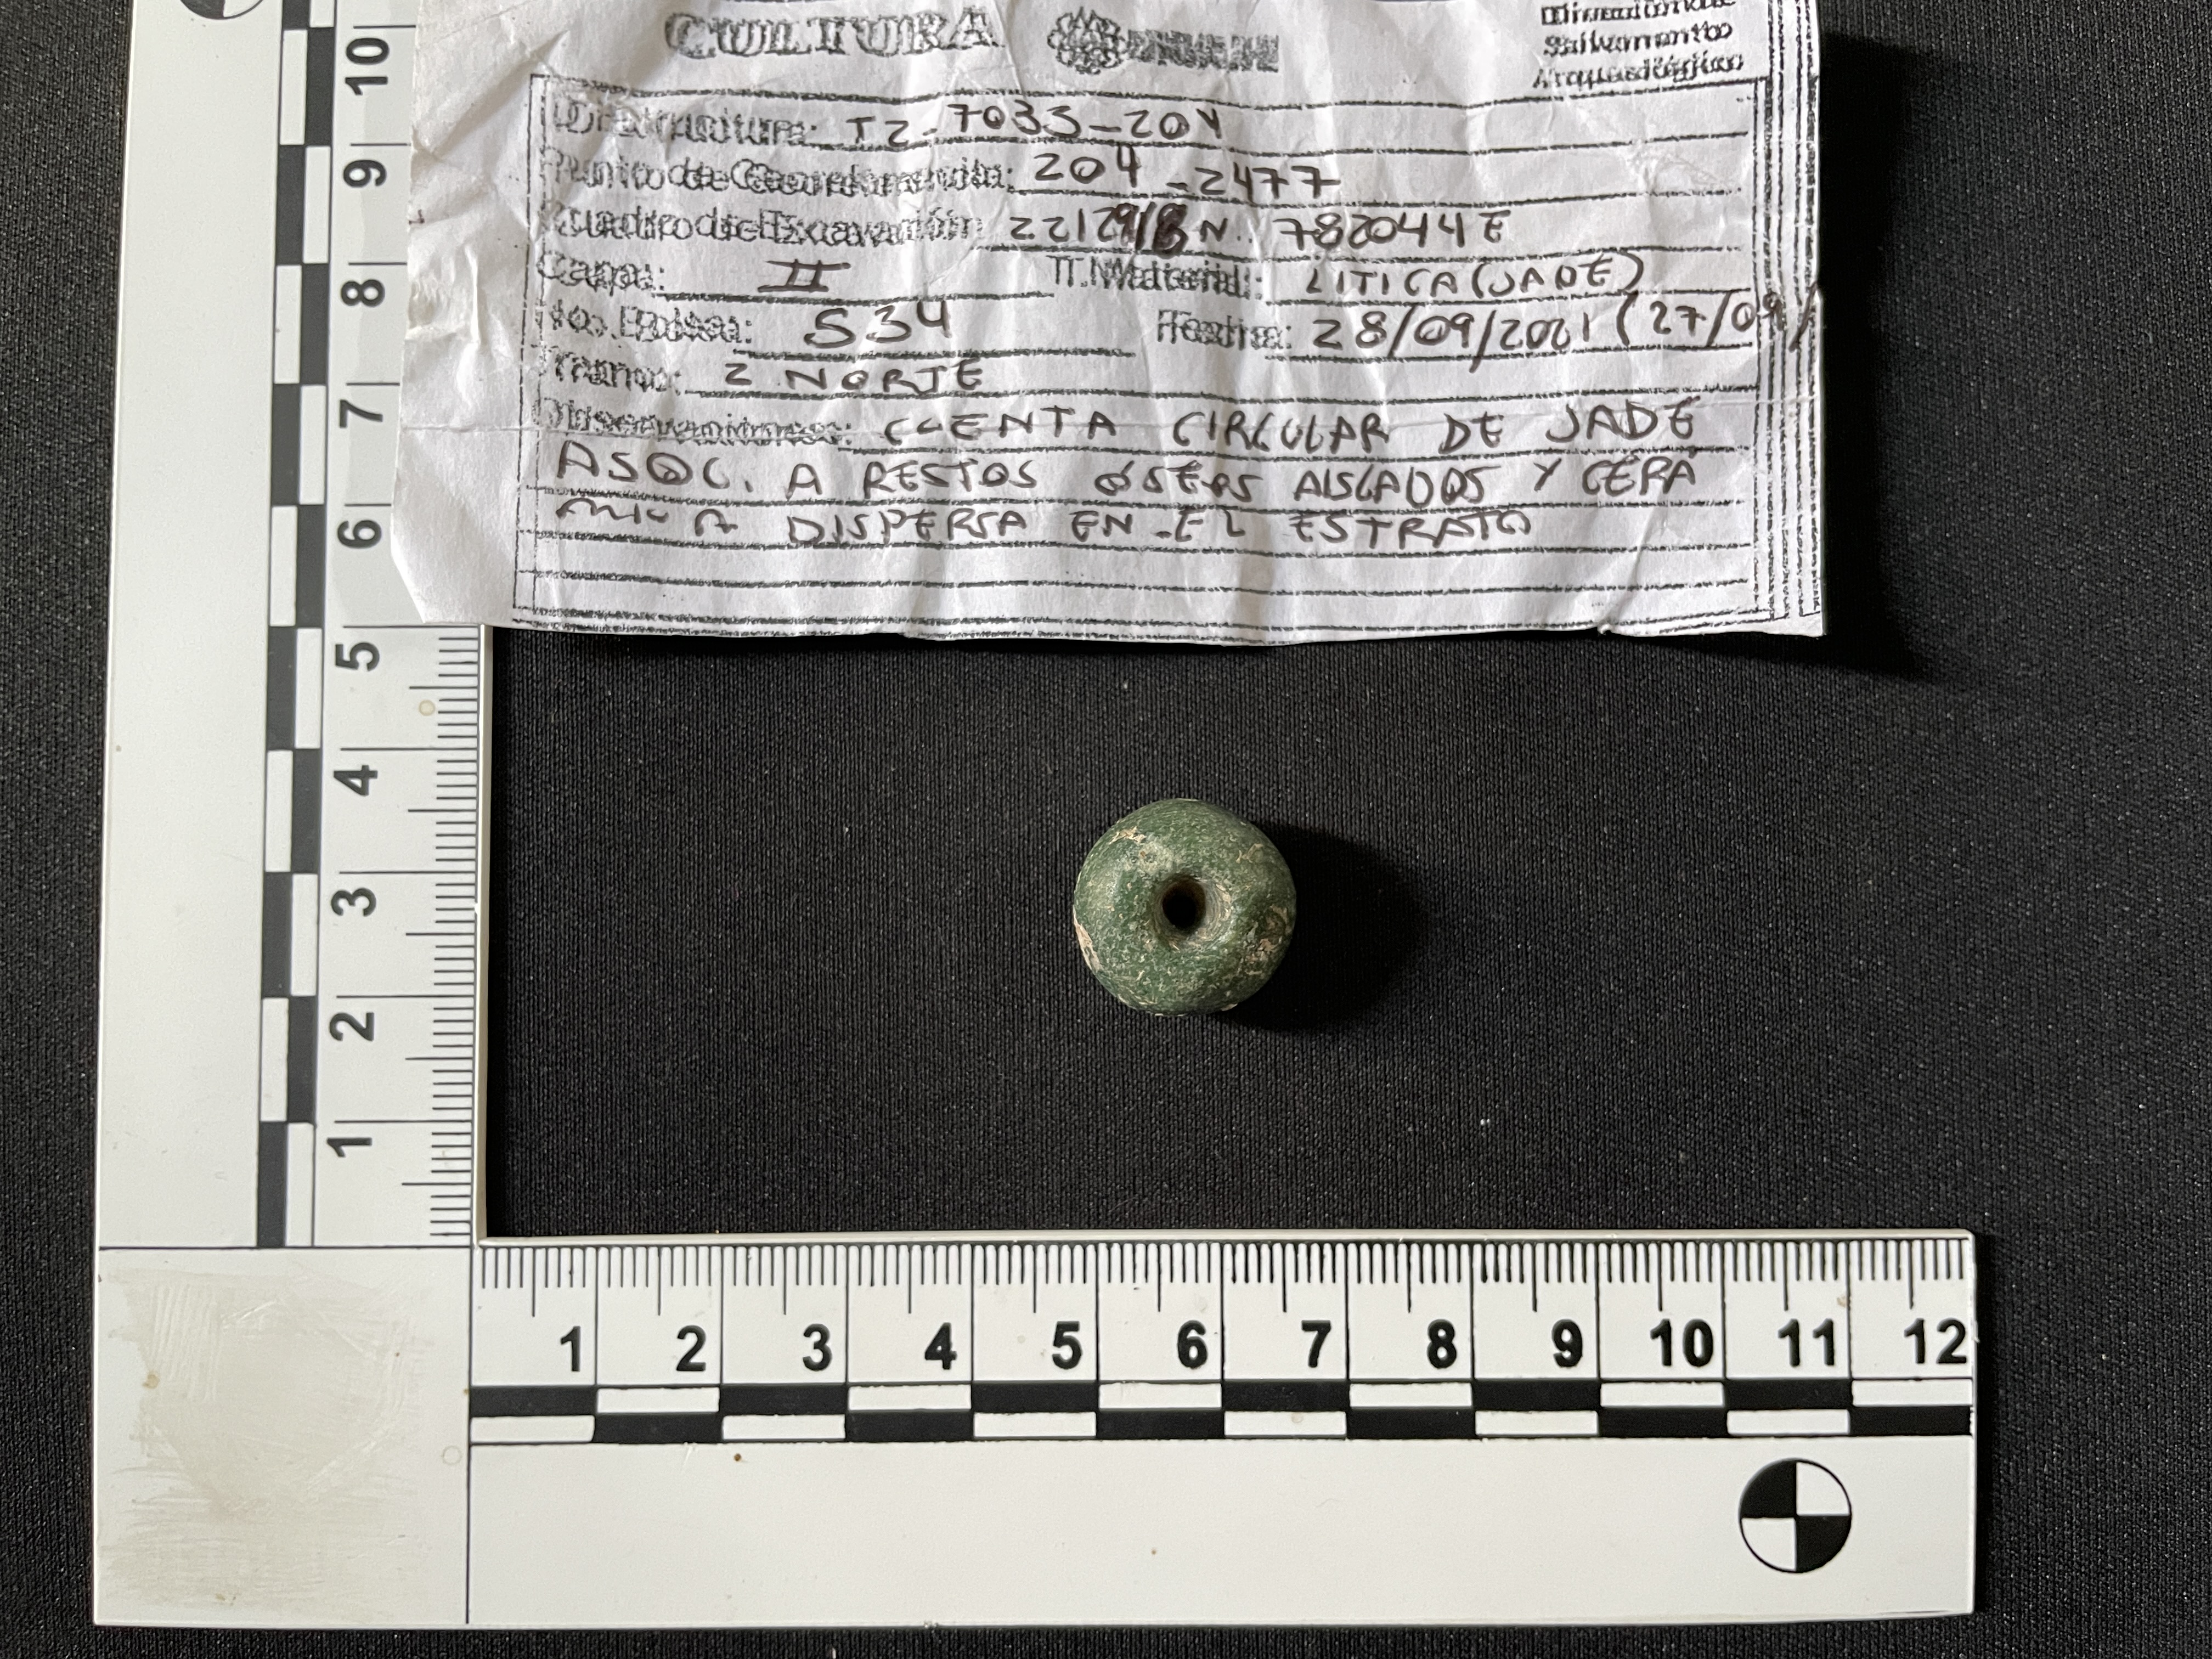 CULTURA
Salvamento
Arqueológico
T2-7033-204
Punto de 204-2477
Cuadro de Excavación 2212918 N. 782044 E
Capa: II T. Material: LITICA (JADE)
No. Bolsa: 534 Fecha: 28/09/2021 (27/09)
Tramo: 2 NORTE
Observaciones: CUENTA CIRCULAR DE JADE
ASOC. A RESTOS ÓSEOS AISLADOS Y CERÁ
MICA DISPERSA EN EL ESTRATO
10
9
8
7
6
5
4
3
2
1
1 2 3 4 5 6 7 8 9 10 11 12